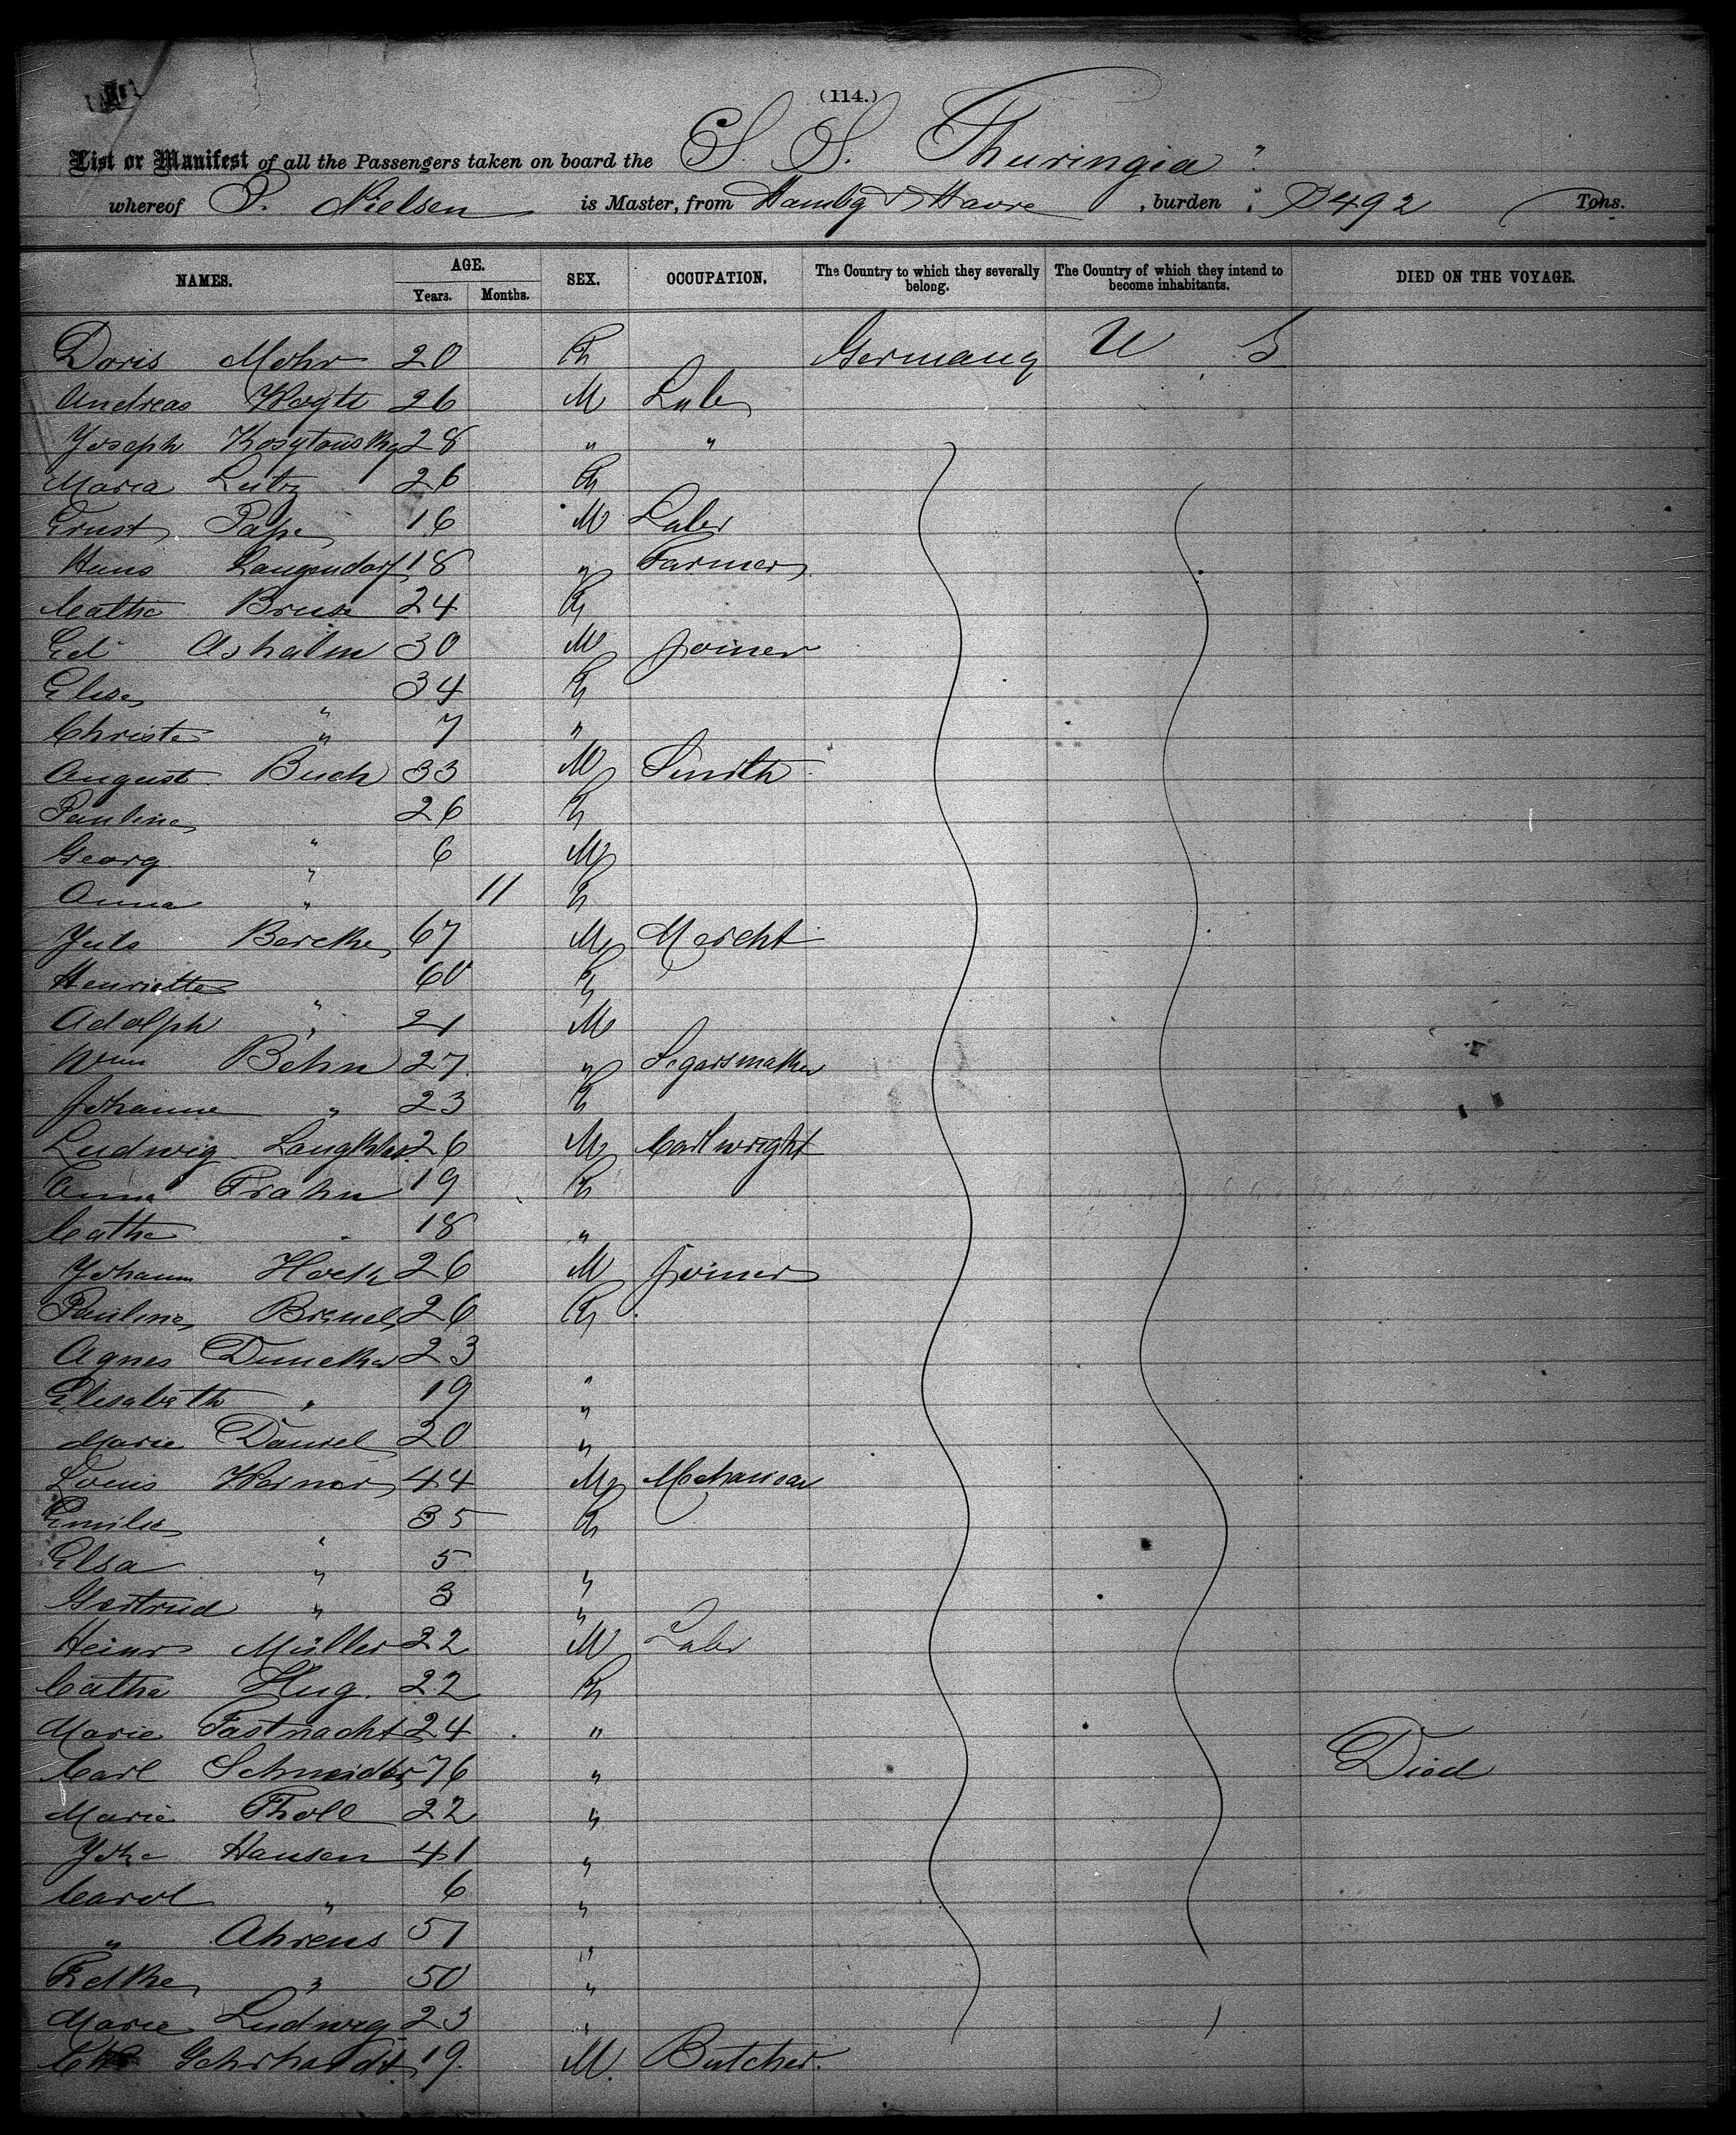 (114.)
List or Manifest of all the Passengers taken on board the S. S. Thuringia "
whereof P. Nielsen is Master, from Hambg & Havre, burden 2492 Tons.
NAMES. AGE. Years. Months. SEX. OCCUPATION. The Country to which they severally belong. The Country of which they intend to become inhabitants. DIED ON THE VOYAGE.
Doris Mohr 20 Fh Germany U S
Andreas 26 M Labr
Joseph 28 " "
Maria 26 Fh
Ernst Pape 16 M Labr
Hans Langendorf 18 " Farmer
Cathe Bruse 24 Fh
Ed Ashalm 30 M Joiner
Elise " 34 Fh
Christe " 7 "
August Buch 33 M Smith
Pauline " 26 Fh
Georg " 6 M
Anna " 11 Fh
Juls 67 M Mercht
Henriette " 60 Fh
Adolph " 21 M
Wm Behn 27 " Segarsmaker
Johanne " 23 Fh
Ludwig 26 M Cartwright
Anna Frahm 19 Fh
Cathe " 18 "
Johann Hoek 26 M Joiner
Pauline 26 Fh
Agnes Duncker 23 "
Elisabeth " 19 "
Marie Daniel 20 "
Louis Werner 44 M Mechanican
Emilie " 35 Fh
Elsa " 5 "
Gertrud " 3 "
Heinr Müller 22 M Labr
Cathe Hug. 22 Fh
Marie Fastnacht 24 "
Carl Schneider 76 " Died
Marie Tholl 22 "
Johe Hansen 41 "
Carol " 6 "
" Ahrens 51 "
" 50 "
Marie Ludwig 23 "
Gehrhardt 19 M. Butcher.